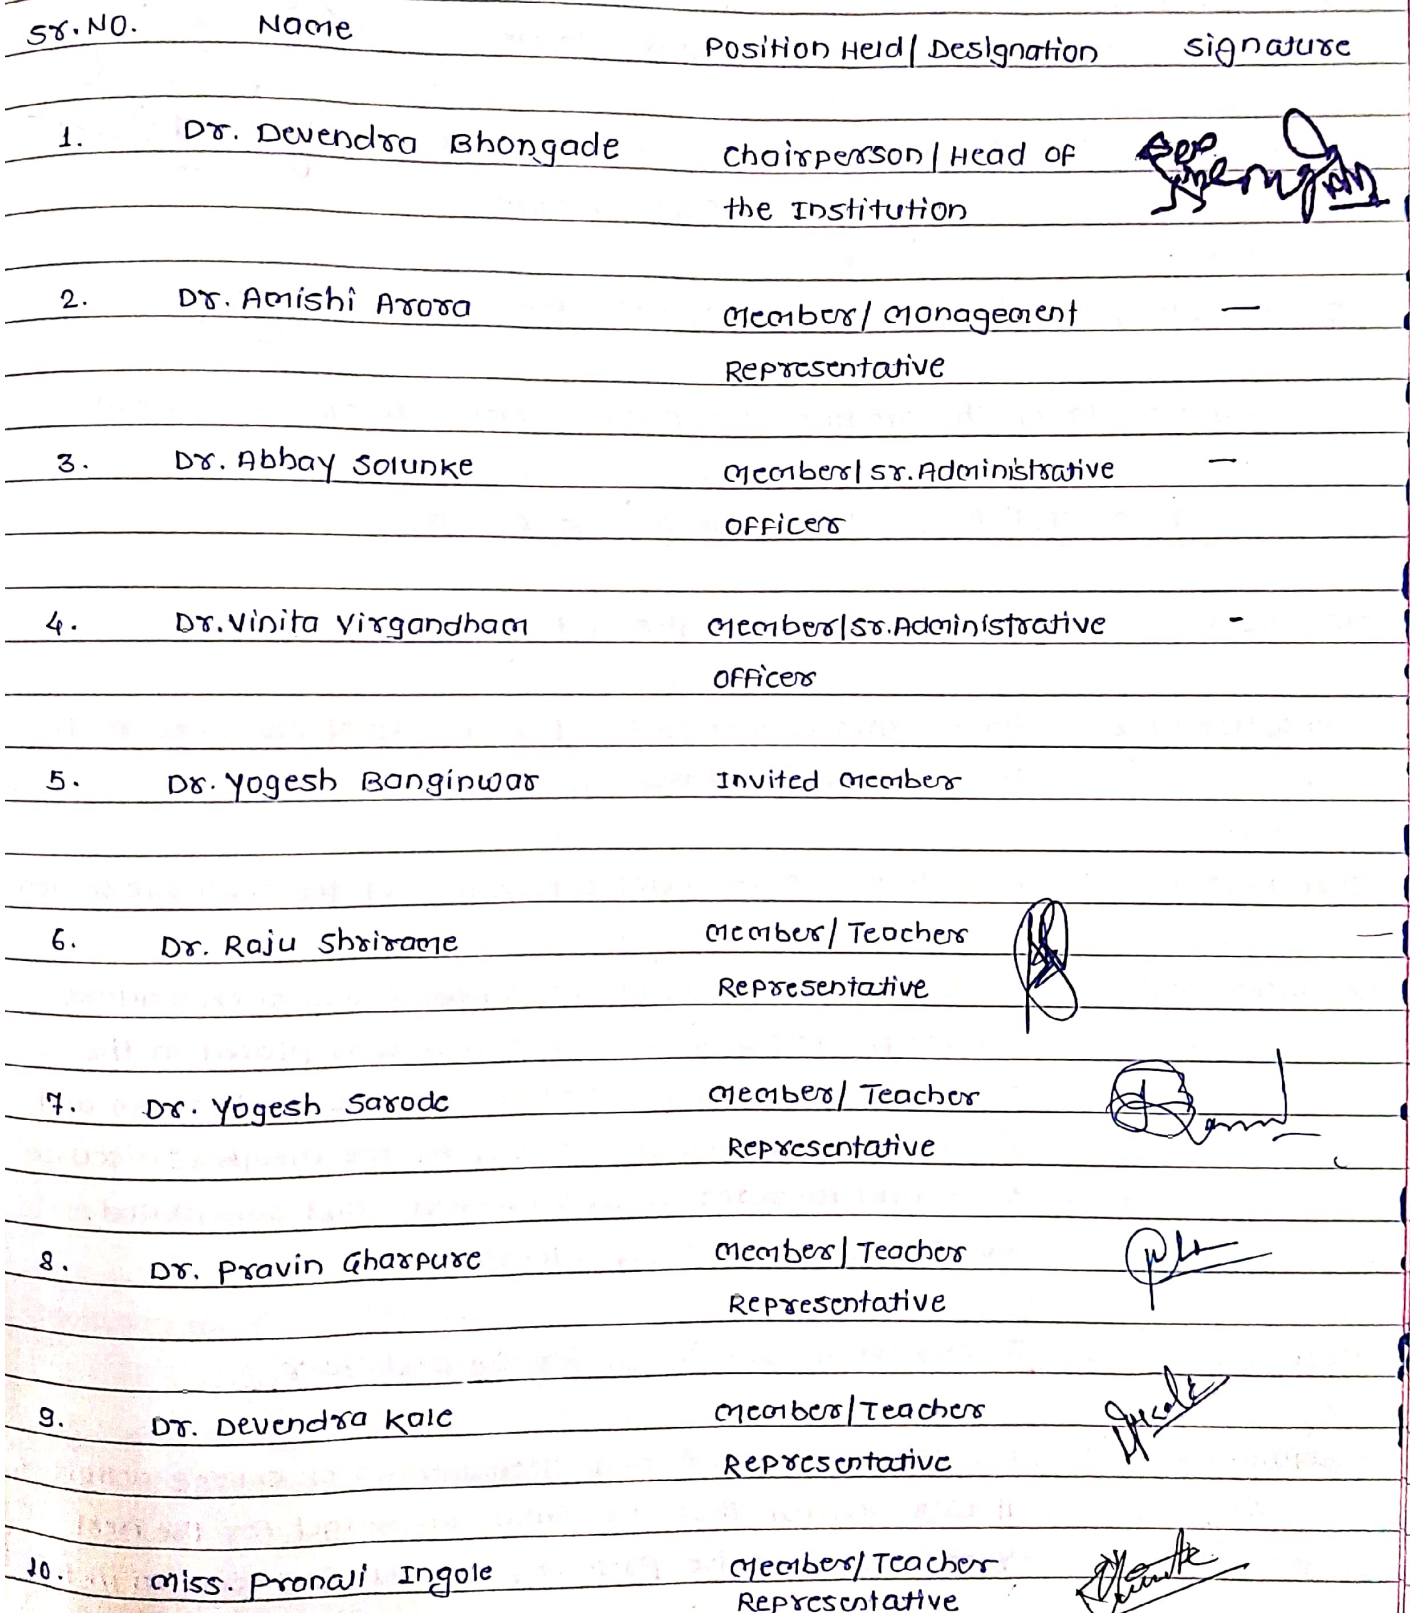 Sr. NO. Name Position Held/ Designation Signature
1. Dr. Devendra Bhongade Chairperson/ Head of
the Institution
2. Dr. Amishi Arora Member/ Management —
Representative
3. Dr. Abhay Solunke Member/ Sr. Administrative —
Officer
4. Dr. Vinita Virgandham Member/ Sr. Administrative -
Officer
5. Dr. Yogesh Banginwar Invited Member
6. Dr. Raju Shrirame Member/ Teacher —
Representative
7. Dr. Yogesh Sarode Member/ Teacher
Representative
8. Dr. Pravin Gharpure Member/ Teacher
Representative
9. Dr. Devendra Kale Member/ Teacher
Representative
10. Miss. Pronali Ingole Member/ Teacher
Representative